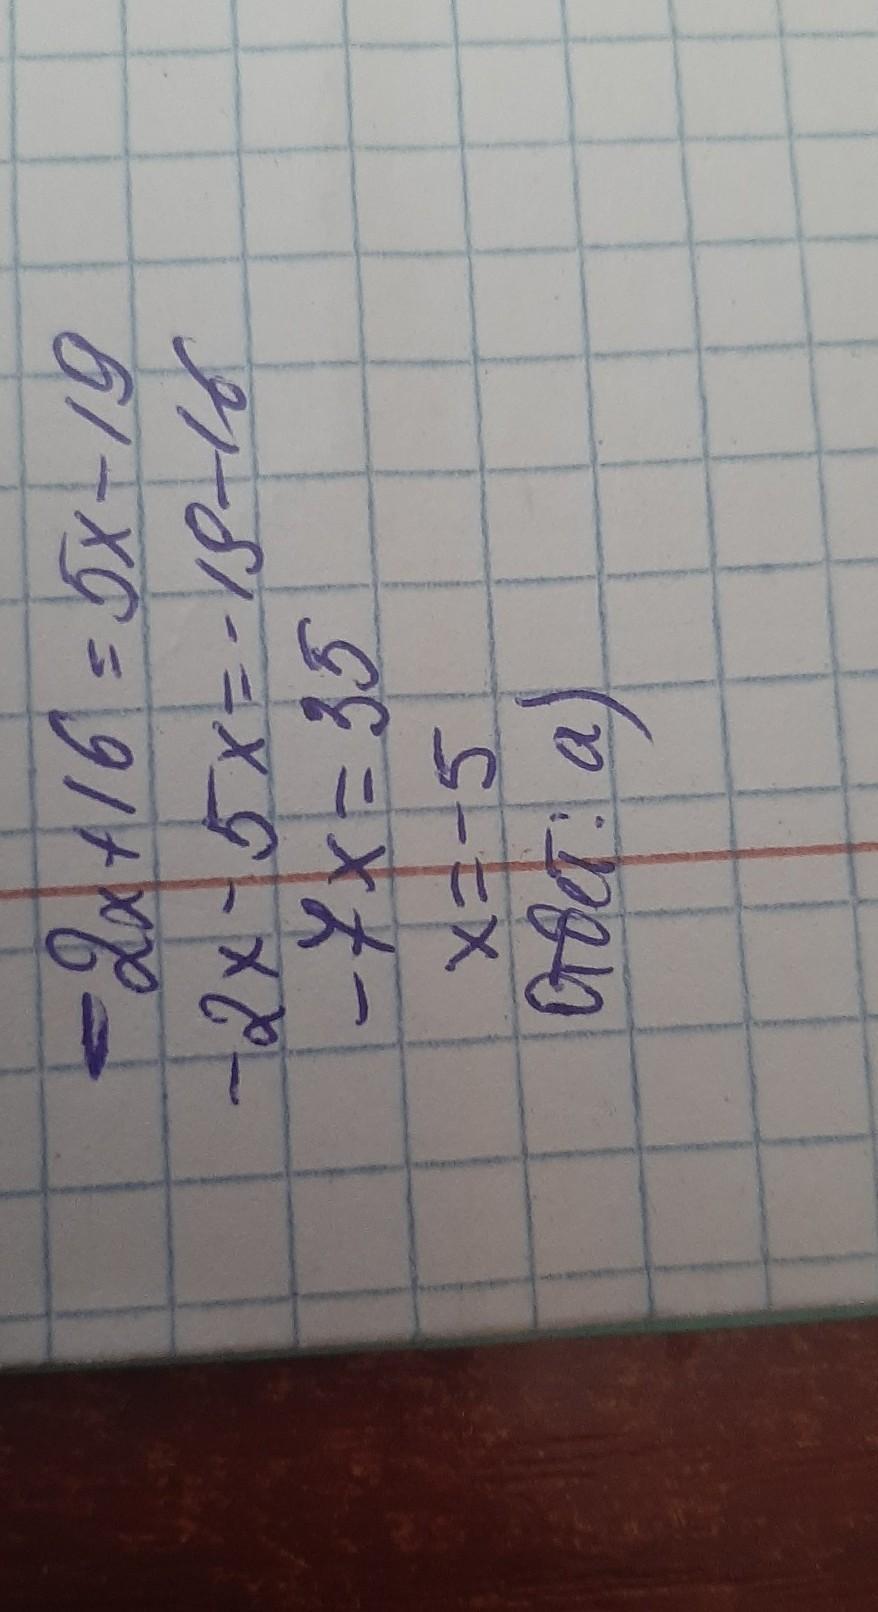 -2x+16=5x-19
-2x-5x=-19-16
-7x=35
x=-5
Ответ: а)